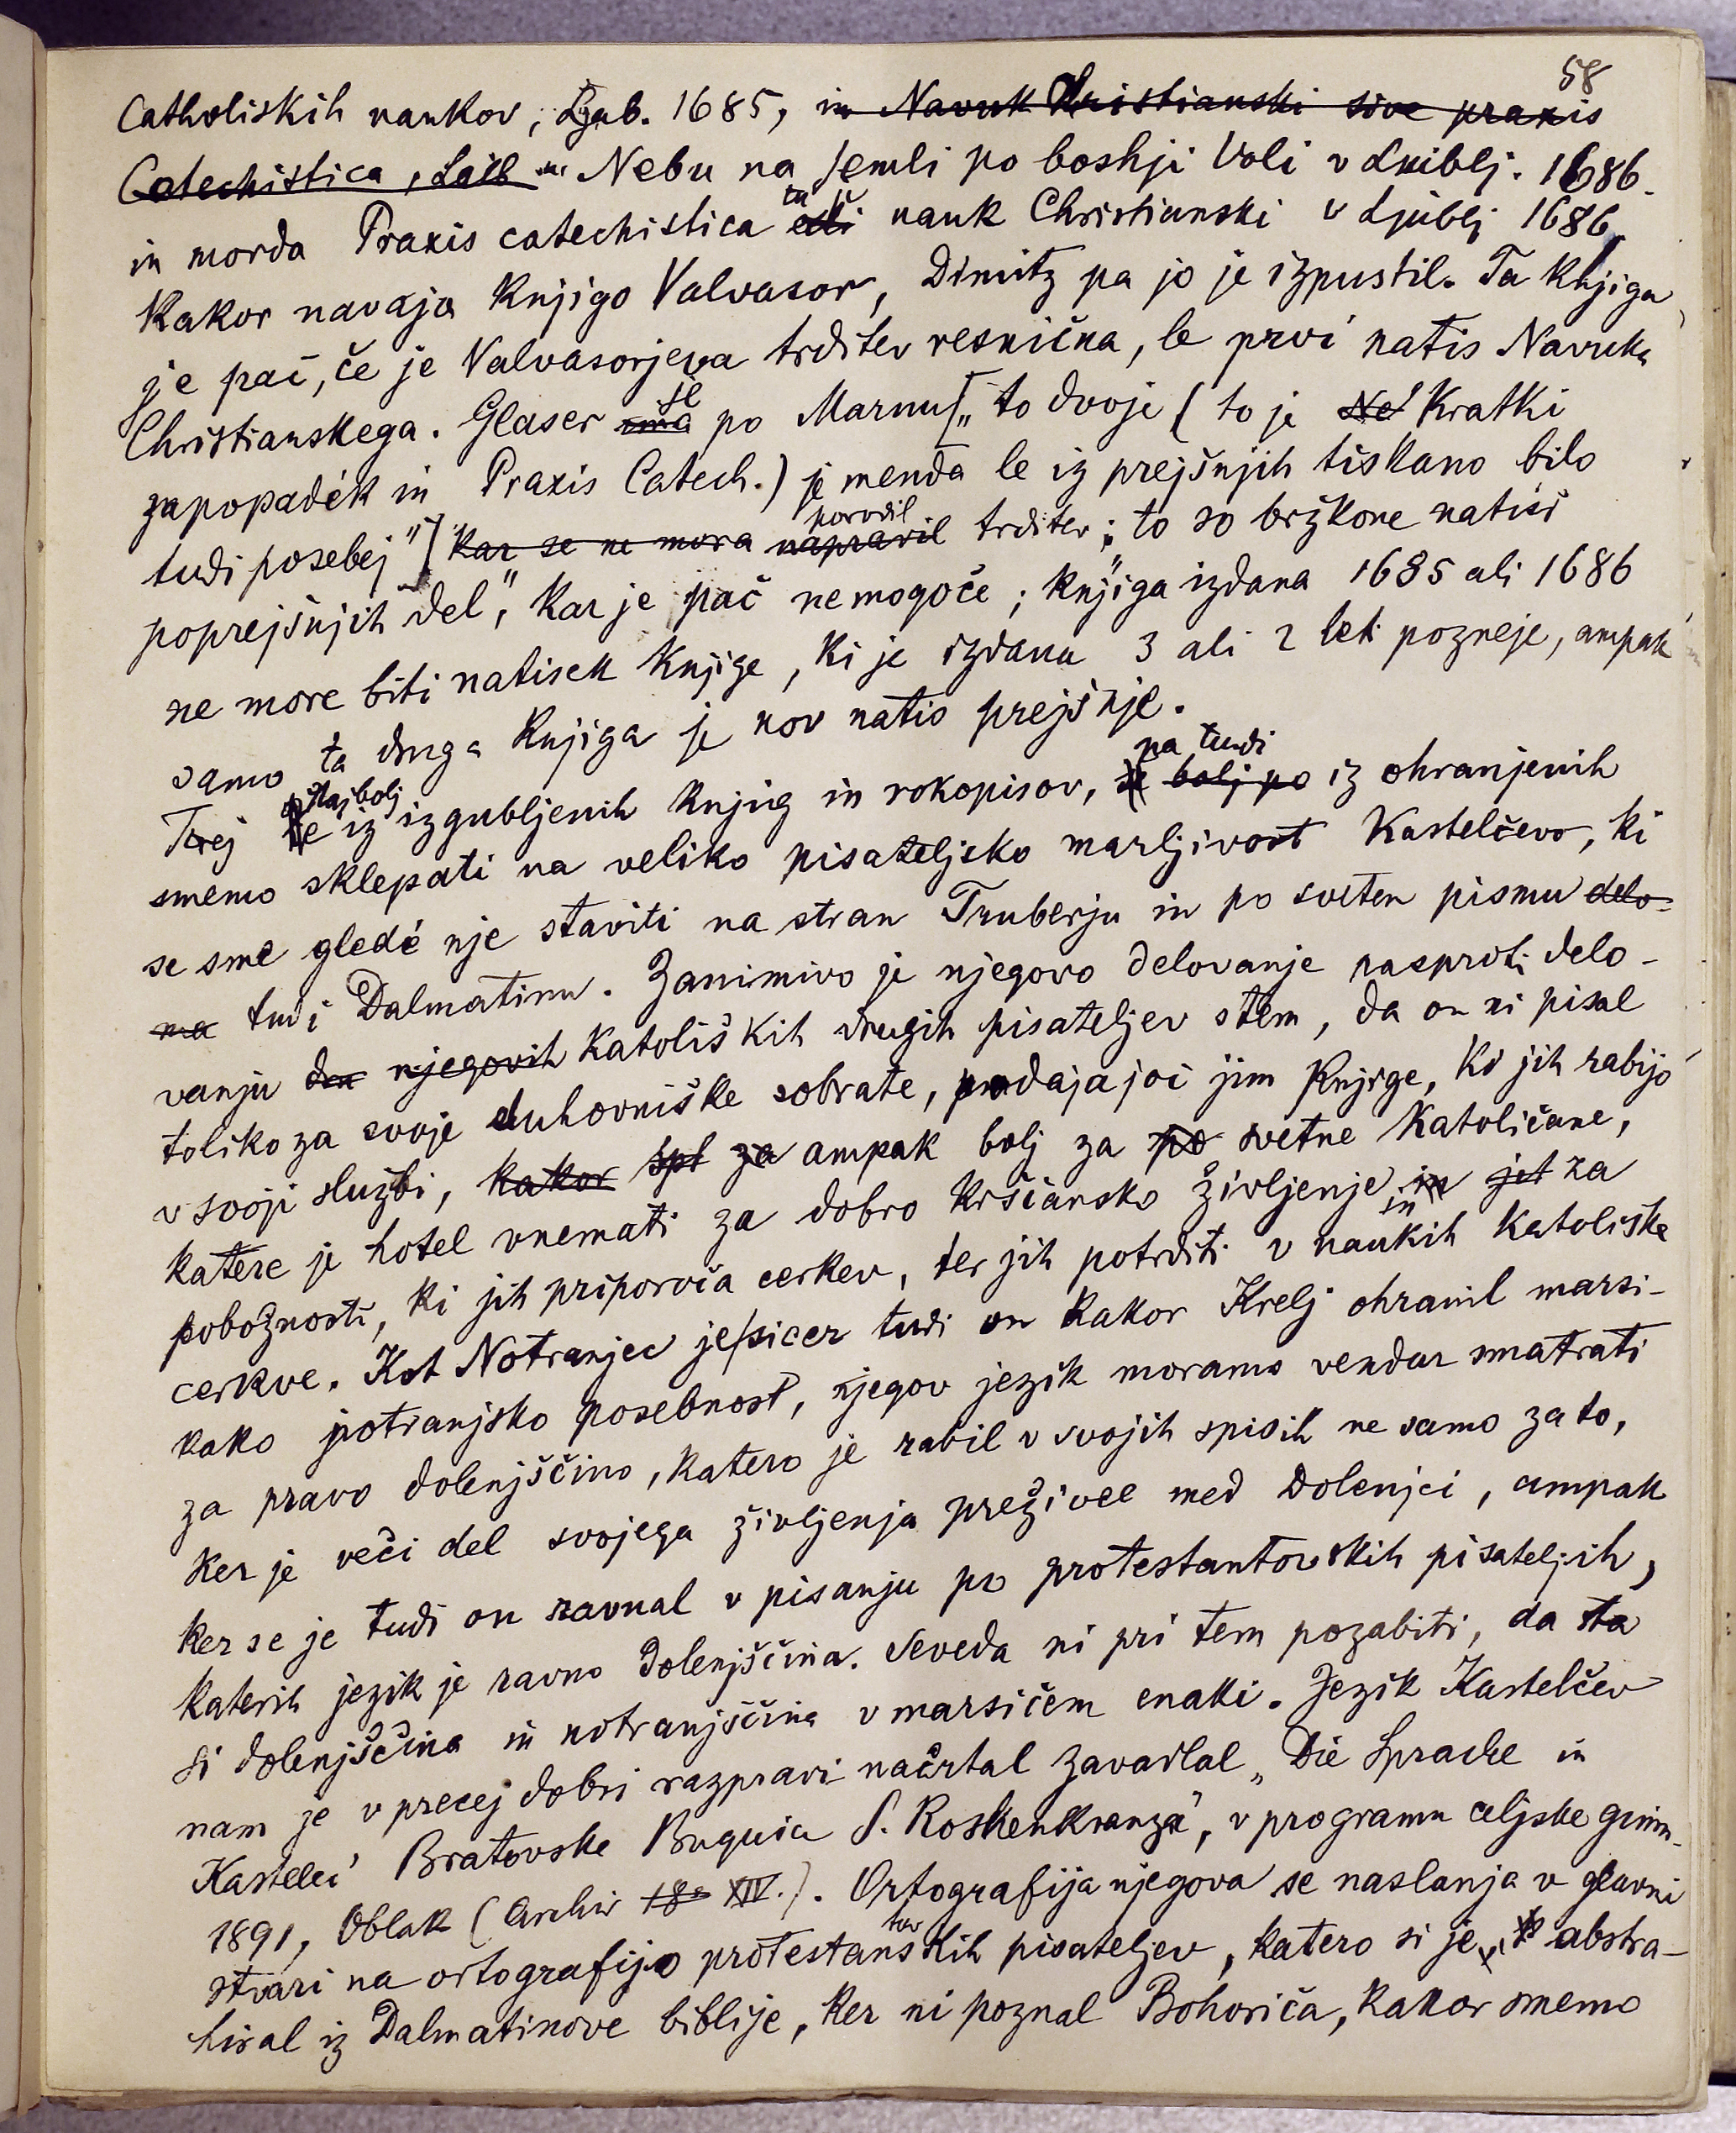 58
Catholiskih naukov, Ljub. 1685, in Navuk Kristianski sive praxis
Catechistica, Laib in Nebu na semli po boshji Voli v Lubblj. 1686.
in morda Praxis catechistica tu ešti nauk Christianski v Ljublj 1686,
kakor navaja knjigo Valvasor, Dimitz pa jo je izpustil. Ta knjiga
je pač, če je Valvasorjeva trditev resnična, le prvi natis Navuka
Christianskega. Glaser ima je po Marnu [„to dvoje (to je Ne Kratki
zapopadék in Praxis Catech.) je menda le iz prejšnjih tiskano bilo
tudi posebej"] kar se ne mora napravil ponovil trditev: „to so bržkone natisi
poprejšnjih del", kar je pač nemogoče; knjiga izdana 1685 ali 1686
ne more biti natisek knjige, ki je izdana 3 ali 2 leti pozneje, ampak
samo ta druga knjiga je nov natis prejšnje.
Torej najbolj iz izgubljenih knjig in rokopisov, bolj po pa tudi iz ohranjenih
smemo sklepati na veliko pisateljsko marljivost Kastelčevo, ki
se sme gledé nje staviti na stran Truberju in po svetem pismu delo-
ma tudi Dalmatinu. Zanimivo je njegovo delovanje nasproti delo-
vanju njegovih katoliških drugih pisateljev s tem, da on ni pisal
toliko za svoje duhovniške sobrate, podajajoč jim knjige, ki jih rabijo
v svoji službi, kakor spl za ampak bolj za po svetne katoličane,
katere je hotel vnemati za dobro krščansko življenje in in jet za
pobožnosti, ki jih priporoča cerkev, ter jih potrditi v naukih katoliške
cerkve. Kot Notranjec je sicer tudi on kakor Krelj ohranil marsi-
kako notranjsko posebnost, njegov jezik moramo vendar smatrati
za pravo dolenjščino, katero je rabil v svojih spisih ne samo zato,
ker je veči del svojega življenja preživel med Dolenjci, ampak
ker se je tudi on ravnal v pisanju po protestantovskih pisateljih,
katerih jezik je ravno dolenjščina. Seveda ni pri tem pozabiti, da sta
si dolenjščina in notranjščina v marsičem enaki. Jezik Kastelčev
nam je v precej dobri razpravi načrtal Zavadlal „Die Sprache in
Kastelec' Bratovske Buquice S. Roshenkranza", v programu celjske gimn.
1891, Oblak (Archiv 18 XIV.). Ortografija njegova se naslanja v glavni
stvari na ortografijo protestanskih tov pisateljev, katero si je abstra-
hiral iz Dalmatinove biblije, ker ni poznal Bohoriča, kakor smemo